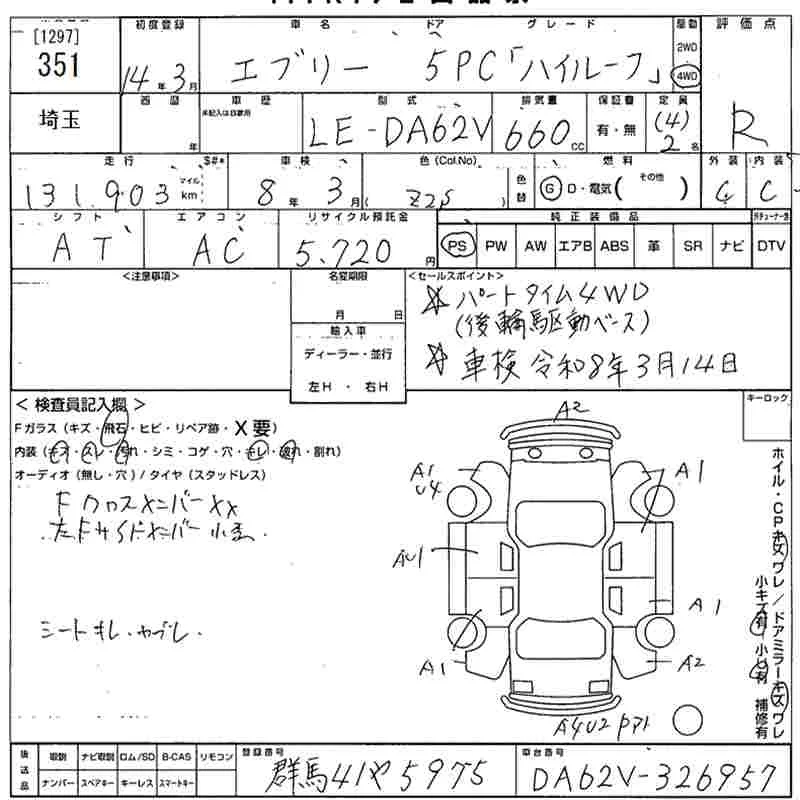 [1297]
351
埼玉
初度登録
14年3月
車名 ドア グレード
エブリー 5PC「ハイルーフ」
駆動
2WD
4WD
評価点
R
西暦
年
車歴
未記入は自家用
型式
LE-DA62V
排気量
660cc
保証書
有・無
定員
(4)
2名
走行 $#*
131,903 マイル km
車検
8年3月
色(Col.No)
(Z2S)
色替
燃料
G D・電気( その他 )
外装 内装
C C
シフト
AT
エアコン
AC
リサイクル預託金
5,720円
純正装備品
PS PW AW エアB ABS 革 SR ナビ DTV
<注意事項>
名変期限
月 日
輸入車
ディーラー・並行
左H・右H
<セールスポイント>
☆パートタイム4WD
(後輪駆動ベース)
☆車検 令和8年3月14日
<検査員記入欄>
Fガラス(キズ・飛石・ヒビ・リペア跡・X要)
内装(キズ・スレ・汚れ・シミ・コゲ・穴・キレ・破れ・割れ)
オーディオ(無し・穴)/タイヤ(スタッドレス)
FクロスメンバーXX
左Fサイドメンバー小歪.
シートキレ・ヤブレ.
キーロック
A2
A1
U4
A1
AU1
A1
A1
A2
A4U2 P71
ホイル・CPキズワレ/ドアミラーキズワレ
小キズ有 小U有 補修有
後送品
取説 ナビ取説 ロム/SD B-CAS リモコン
ナンバー スペアキー キーレス スマートキー
登録番号
群馬41や5975
車台番号
DA62V-326957